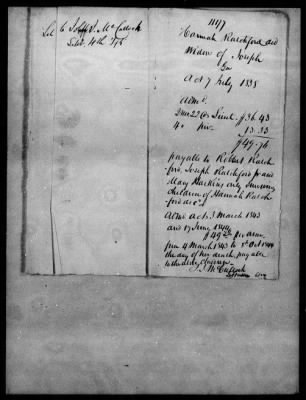 Let. to Jos. J. McCulloch
Sept. 4th
1147
Hannah Ratchford and
Widow of Joseph
Act 7 July 1838
2 mo 22 ds Lieut. $36.43
4 " priv. 13.33
$49.76
payable to Robert Ratch-
ford, Joseph Ratchford and
Mary Harkins only surviving
children of Hannah Ratch-
ford decd
Act 3 March 1843
and 17 June 1844
$49 per ann
from 4 March 1843 to 1st Oct 1844
the day of her death payable
to the